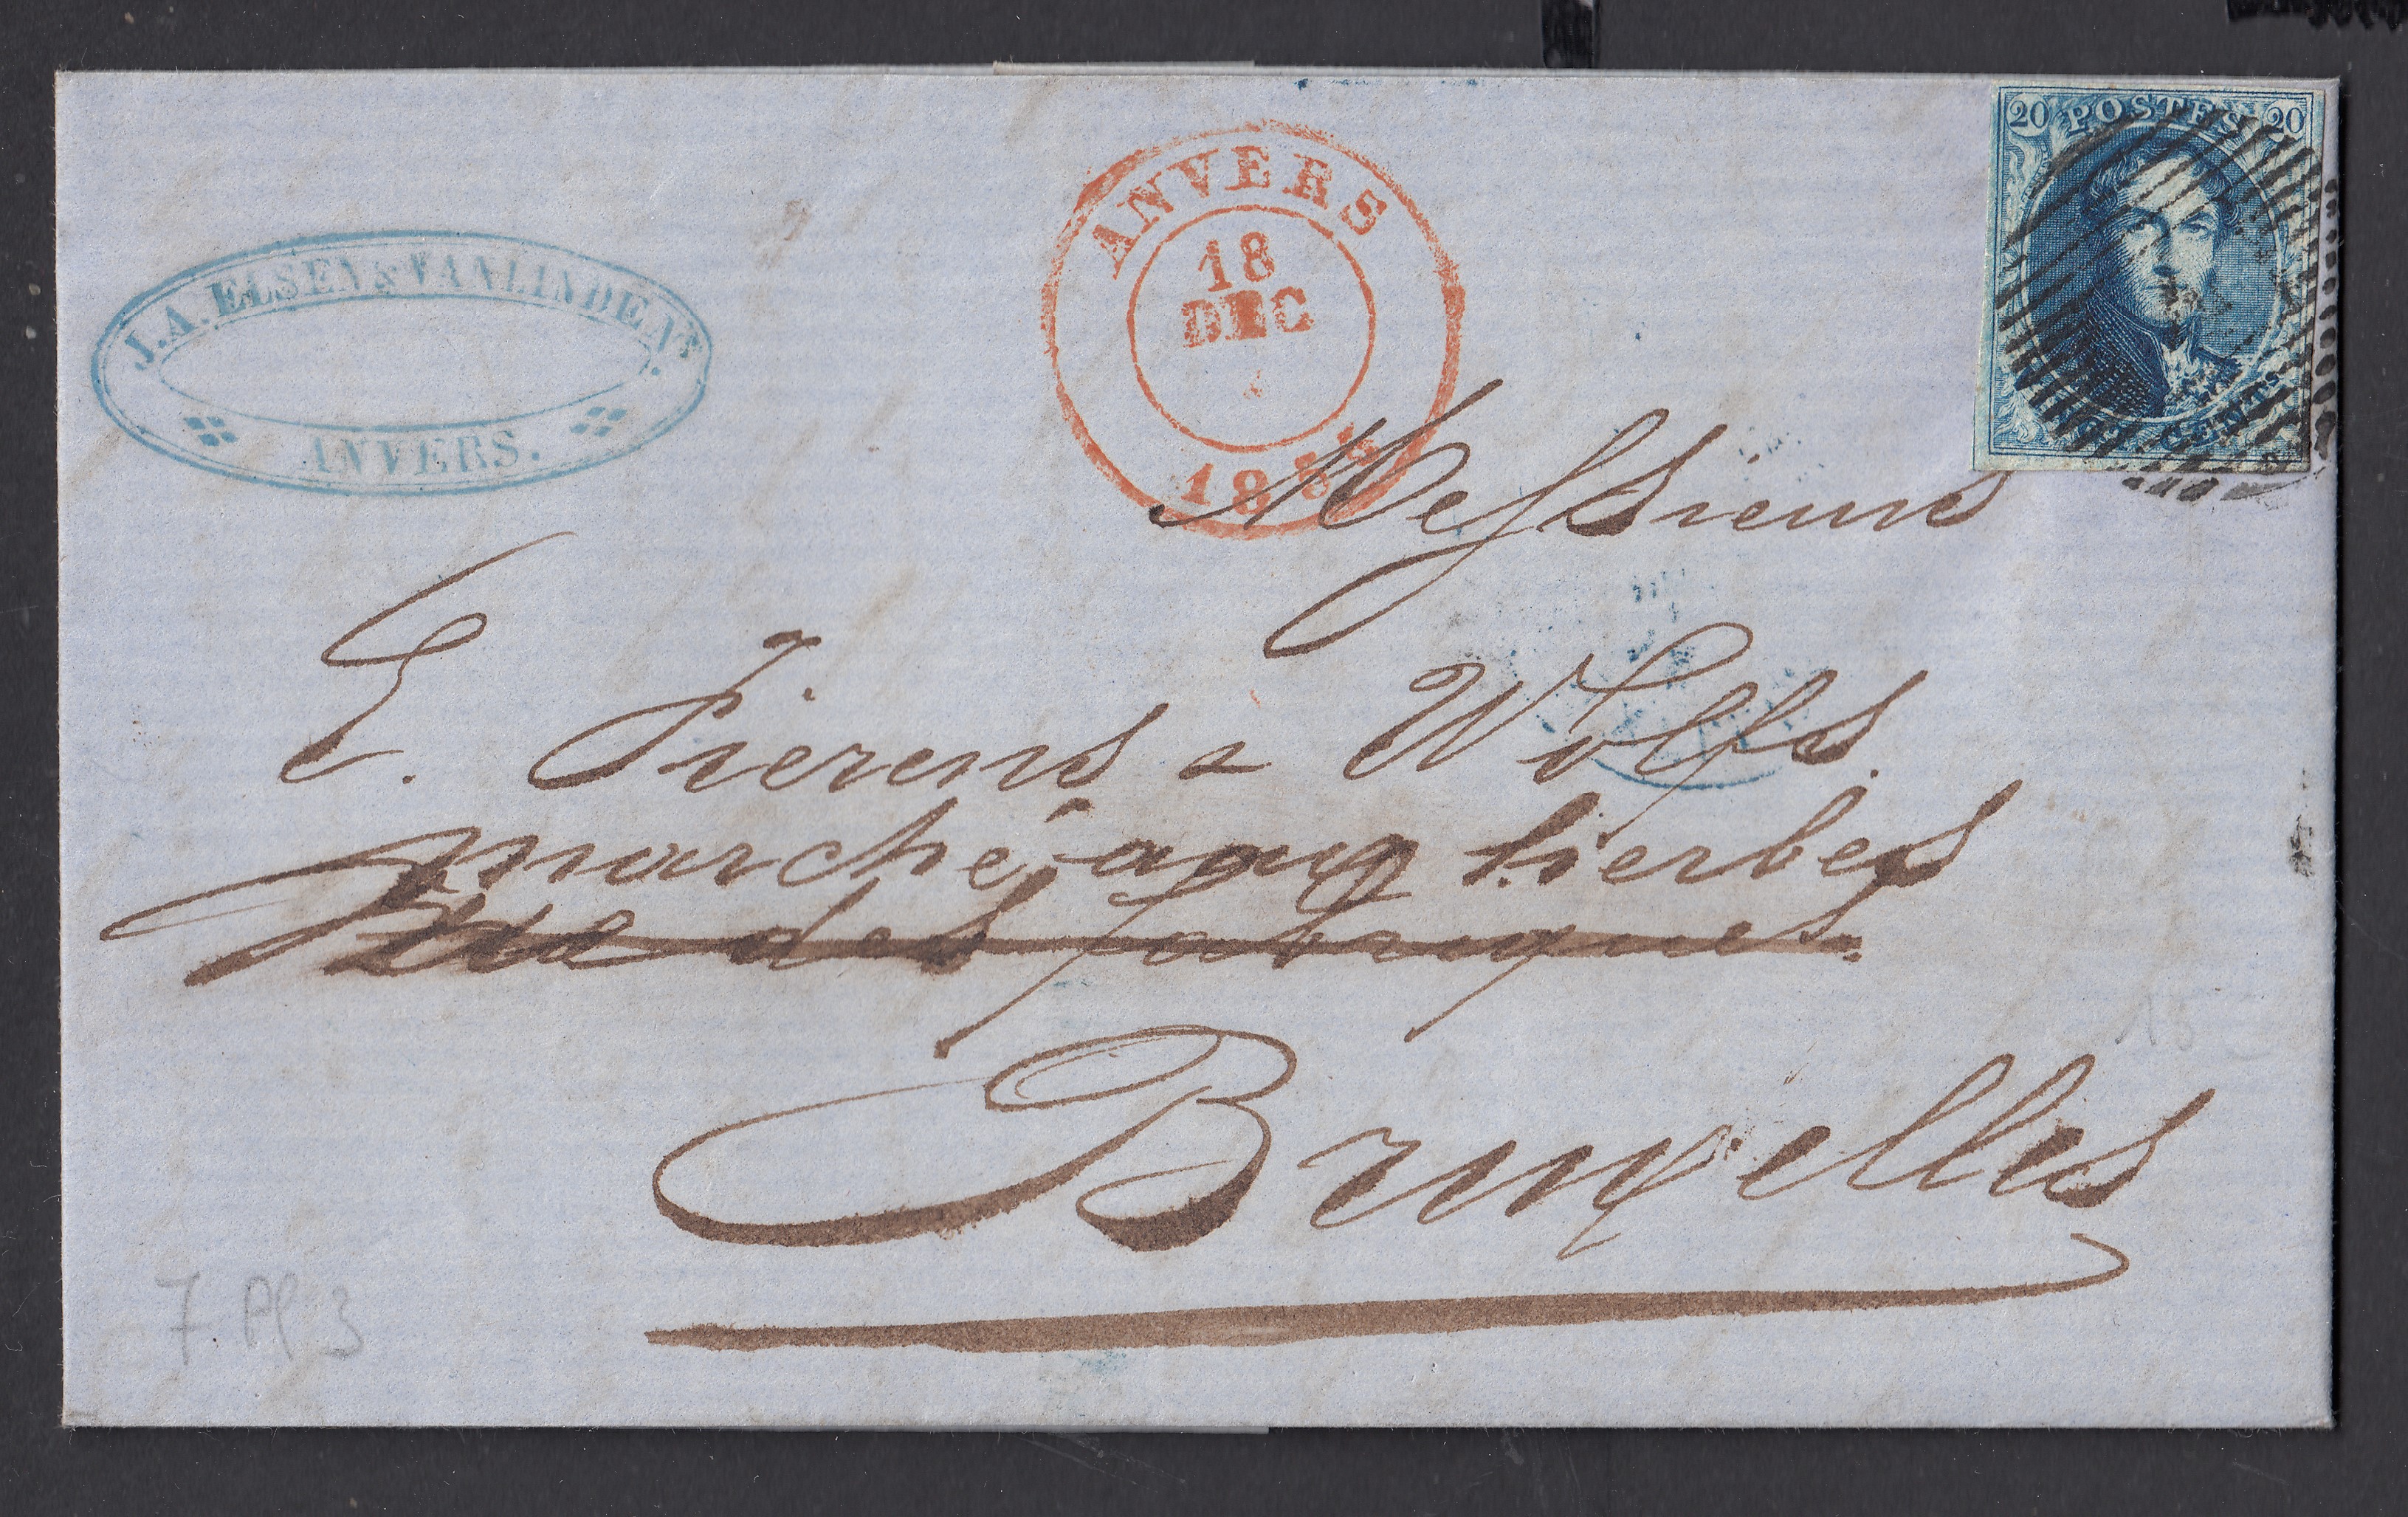 J. A. ELSEN & VANLINDEN
ANVERS.
ANVERS
18
DEC
20 POSTES 20
CENT.
Messieurs
E. Fierens & Wolfs.
marché aux herbes
Rue des fabriques.
Bruxelles
7 Pl 3